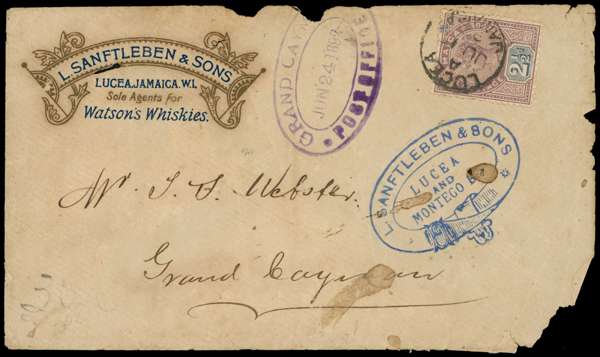 L. SANFTLEBEN & SONS
LUCEA, JAMAICA. W.I.
Sole Agents For
Watson's Whiskies.
GRAND CAY
JUN 24 1892
POST OFFICE
LUCEA
JAMAICA
A
JU
2½d
L. SANFTLEBEN & SONS
LUCEA
AND
MONTEGO B
Mr. J. S. Webster.
Grand Cayman